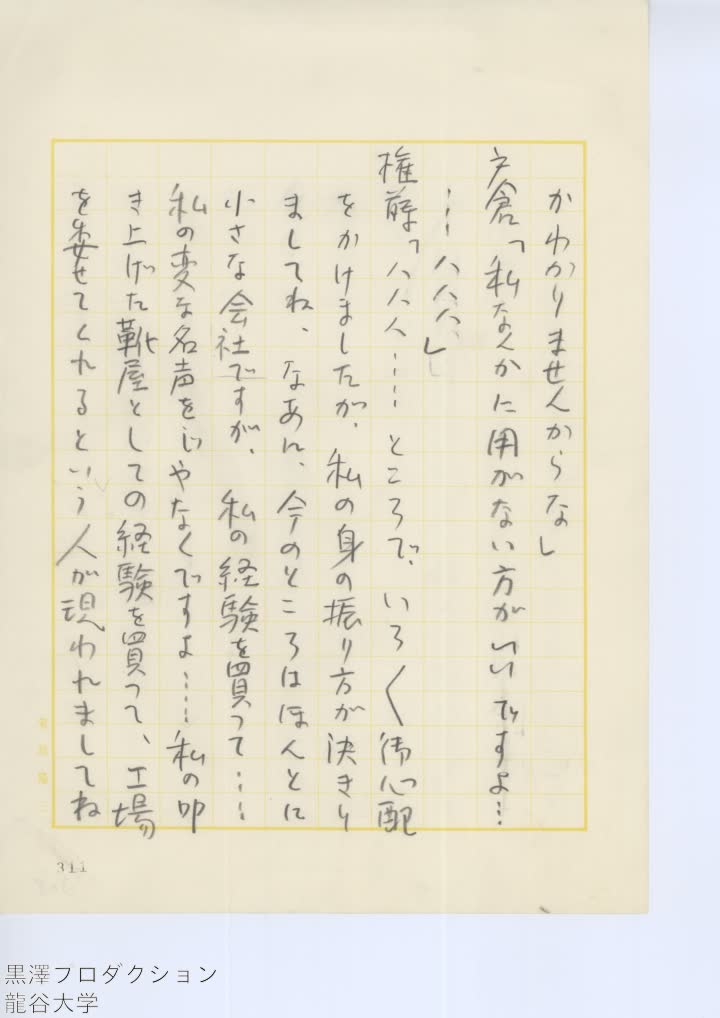 かわかりませんからな」
戸倉「私なんかに用がない方がいいですよ…
…ハハハ」
権藤「ハハハ……ところで、いろ〱御心配
をかけましたが、私の身の振り方が決きり
ましてね、なあに、今のところはほんとに
小さな会社ですが、私の経験を買って……
私の変な名声をじやなくですよ……私の叩
き上げた靴屋としての経験を買って、工場
を委せてくれるという人が現われましてね
311
黒澤プロダクション
龍谷大学